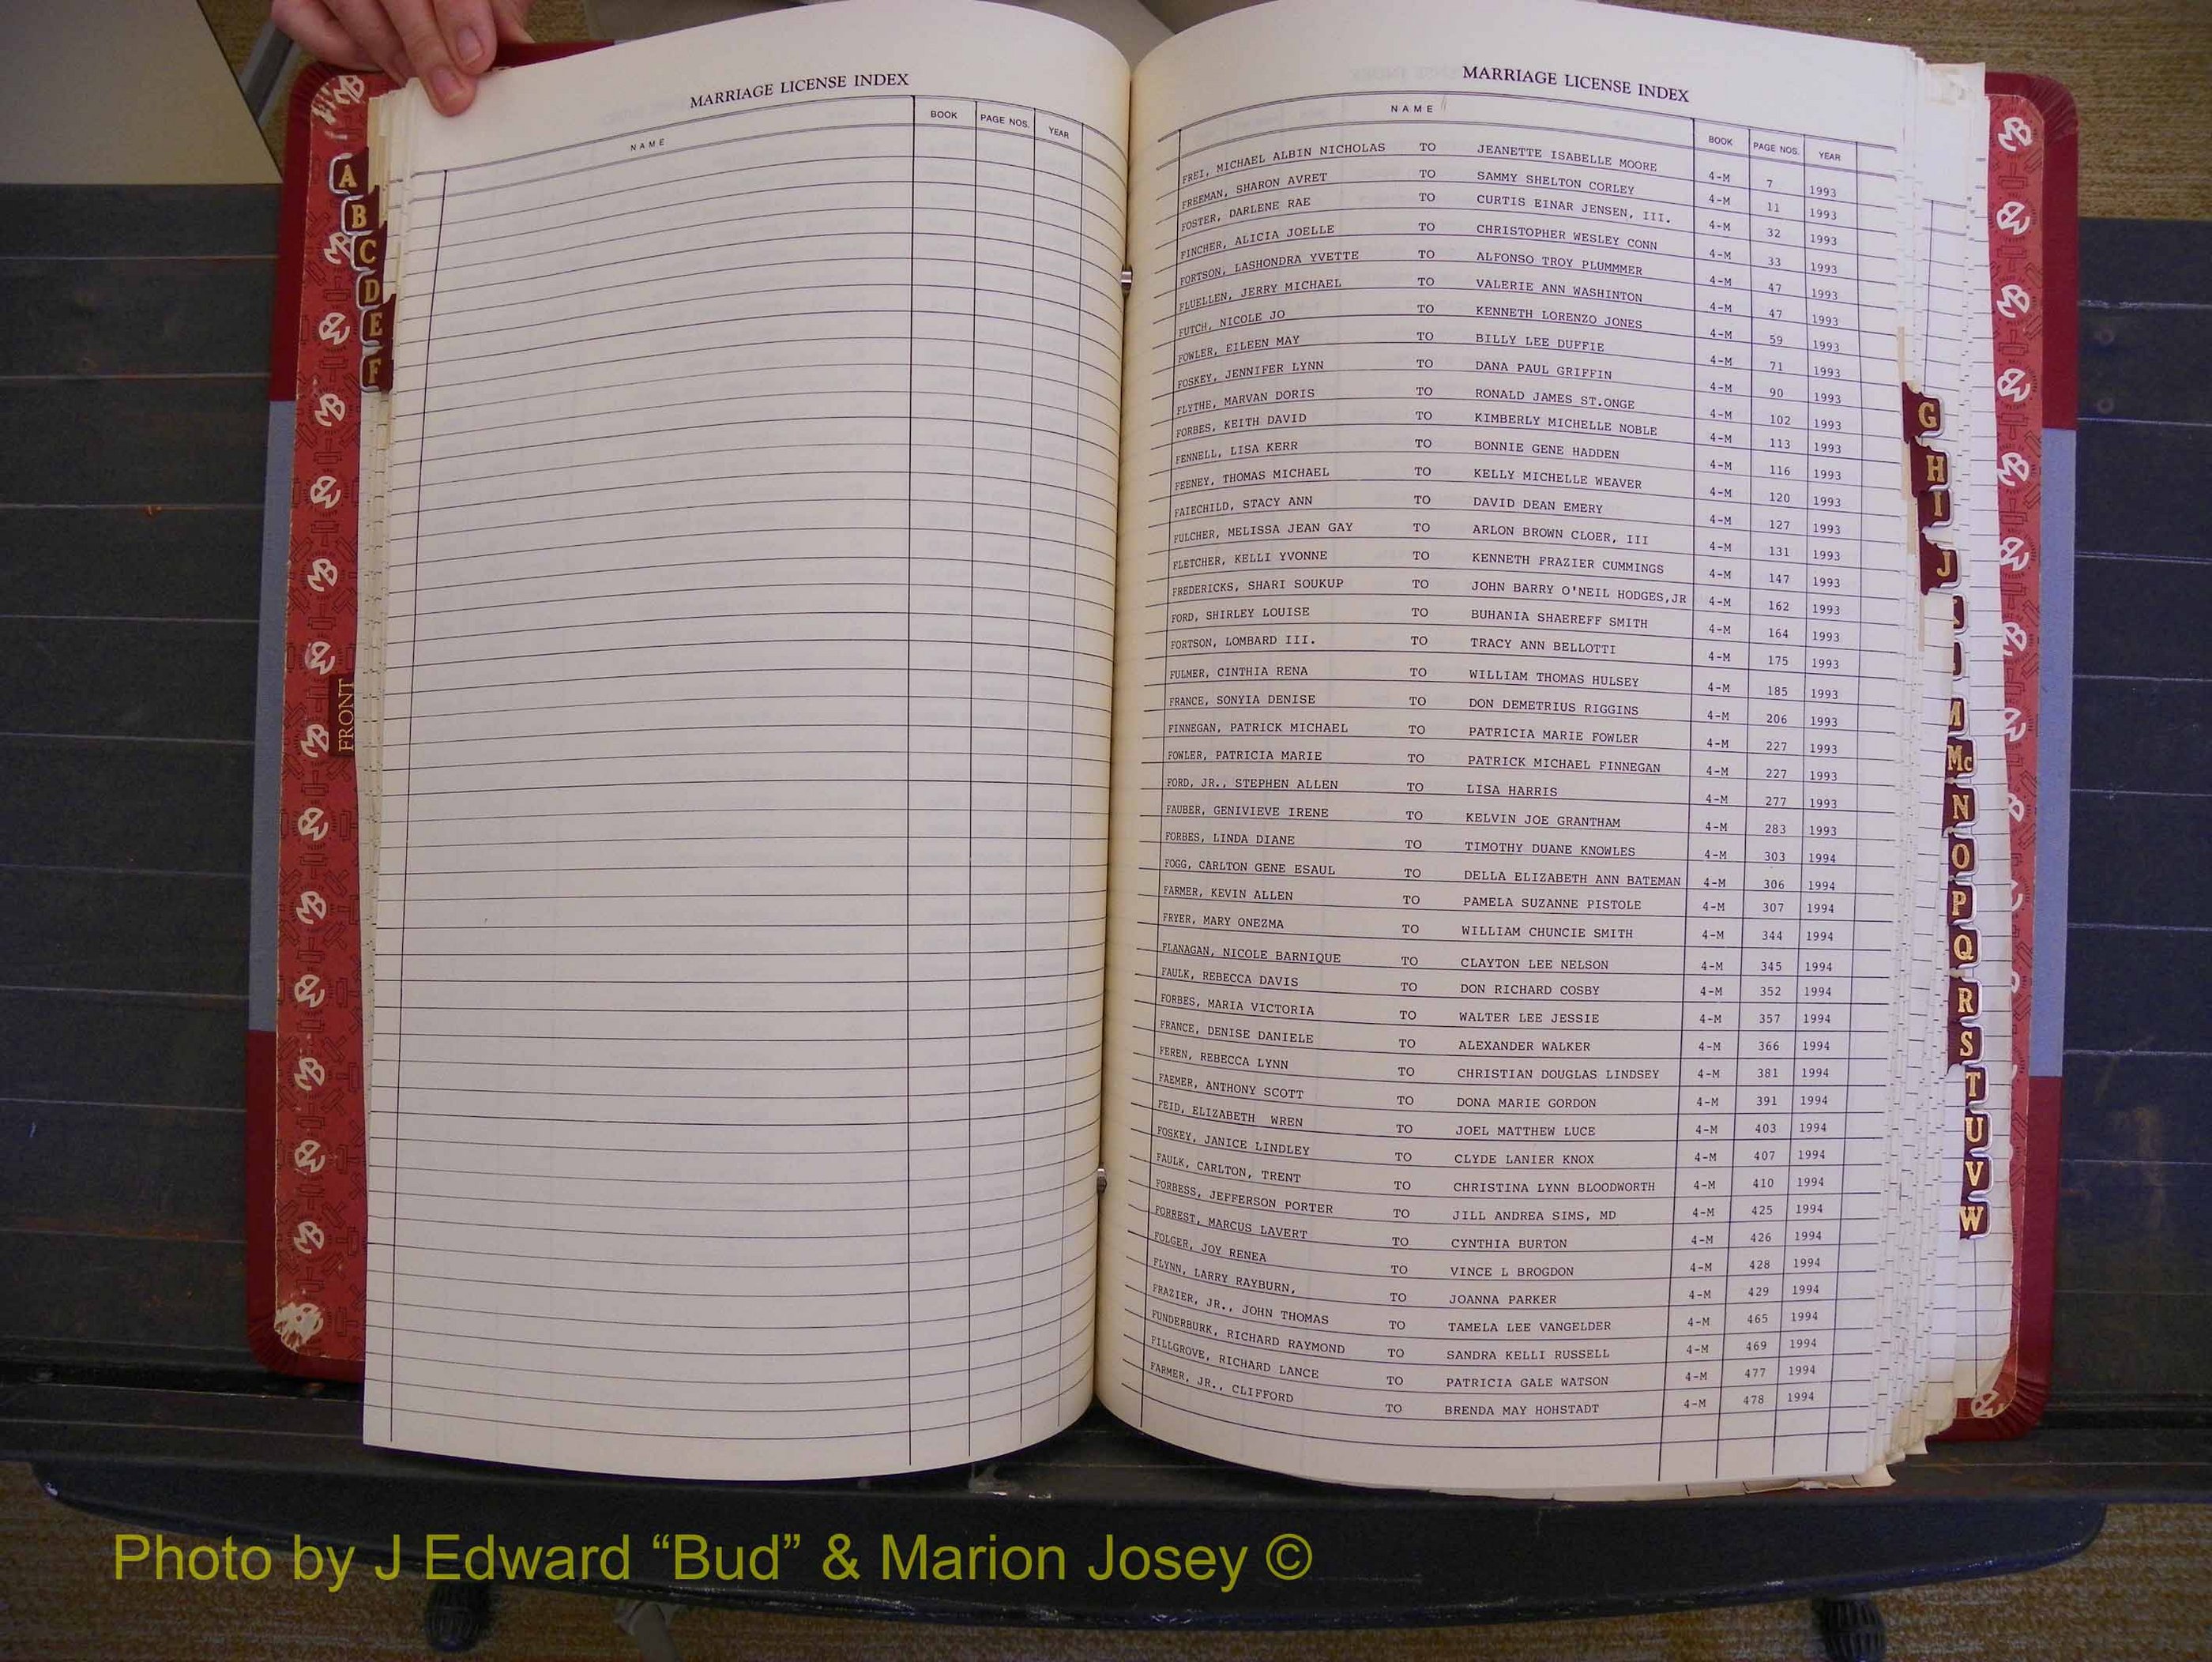 MARRIAGE LICENSE INDEX
NAME BOOK PAGE NOS. YEAR
A
B
C
D
E
F
FRONT
MARRIAGE LICENSE INDEX
NAME BOOK PAGE NOS. YEAR
FREI, MICHAEL ALBIN NICHOLAS TO JEANETTE ISABELLE MOORE 4-M 7 1993
FREEMAN, SHARON AVRET TO SAMMY SHELTON CORLEY 4-M 11 1993
FOSTER, DARLENE RAE TO CURTIS EINAR JENSEN, III. 4-M 32 1993
FINCHER, ALICIA JOELLE TO CHRISTOPHER WESLEY CONN 4-M 33 1993
FORTSON, LASHONDRA YVETTE TO ALFONSO TROY PLUMMMER 4-M 47 1993
FLUELLEN, JERRY MICHAEL TO VALERIE ANN WASHINTON 4-M 47 1993
FUTCH, NICOLE JO TO KENNETH LORENZO JONES 4-M 59 1993
FOWLER, EILEEN MAY TO BILLY LEE DUFFIE 4-M 71 1993
FOSKEY, JENNIFER LYNN TO DANA PAUL GRIFFIN 4-M 90 1993
FLYTHE, MARVAN DORIS TO RONALD JAMES ST.ONGE 4-M 102 1993
FORBES, KEITH DAVID TO KIMBERLY MICHELLE NOBLE 4-M 113 1993
FENNELL, LISA KERR TO BONNIE GENE HADDEN 4-M 116 1993
FEENEY, THOMAS MICHAEL TO KELLY MICHELLE WEAVER 4-M 120 1993
FAIECHILD, STACY ANN TO DAVID DEAN EMERY 4-M 127 1993
FULCHER, MELISSA JEAN GAY TO ARLON BROWN CLOER, III 4-M 131 1993
FLETCHER, KELLI YVONNE TO KENNETH FRAZIER CUMMINGS 4-M 147 1993
FREDERICKS, SHARI SOUKUP TO JOHN BARRY O'NEIL HODGES,JR 4-M 162 1993
FORD, SHIRLEY LOUISE TO BUHANIA SHAEREFF SMITH 4-M 164 1993
FORTSON, LOMBARD III. TO TRACY ANN BELLOTTI 4-M 175 1993
FULMER, CINTHIA RENA TO WILLIAM THOMAS HULSEY 4-M 185 1993
FRANCE, SONYIA DENISE TO DON DEMETRIUS RIGGINS 4-M 206 1993
FINNEGAN, PATRICK MICHAEL TO PATRICIA MARIE FOWLER 4-M 227 1993
FOWLER, PATRICIA MARIE TO PATRICK MICHAEL FINNEGAN 4-M 227 1993
FORD, JR., STEPHEN ALLEN TO LISA HARRIS 4-M 277 1993
FAUBER, GENIVIEVE IRENE TO KELVIN JOE GRANTHAM 4-M 283 1993
FORBES, LINDA DIANE TO TIMOTHY DUANE KNOWLES 4-M 303 1994
FOGG, CARLTON GENE ESAUL TO DELLA ELIZABETH ANN BATEMAN 4-M 306 1994
FARMER, KEVIN ALLEN TO PAMELA SUZANNE PISTOLE 4-M 307 1994
FRYER, MARY ONEZMA TO WILLIAM CHUNCIE SMITH 4-M 344 1994
FLANAGAN, NICOLE BARNIQUE TO CLAYTON LEE NELSON 4-M 345 1994
FAULK, REBECCA DAVIS TO DON RICHARD COSBY 4-M 352 1994
FORBES, MARIA VICTORIA TO WALTER LEE JESSIE 4-M 357 1994
FRANCE, DENISE DANIELE TO ALEXANDER WALKER 4-M 366 1994
FEREN, REBECCA LYNN TO CHRISTIAN DOUGLAS LINDSEY 4-M 381 1994
FAEMER, ANTHONY SCOTT TO DONA MARIE GORDON 4-M 391 1994
FEID, ELIZABETH WREN TO JOEL MATTHEW LUCE 4-M 403 1994
FOSKEY, JANICE LINDLEY TO CLYDE LANIER KNOX 4-M 407 1994
FAULK, CARLTON, TRENT TO CHRISTINA LYNN BLOODWORTH 4-M 410 1994
FORBESS, JEFFERSON PORTER TO JILL ANDREA SIMS, MD 4-M 425 1994
FORREST, MARCUS LAVERT TO CYNTHIA BURTON 4-M 426 1994
FOLGER, JOY RENEA TO VINCE L BROGDON 4-M 428 1994
FLYNN, LARRY RAYBURN, TO JOANNA PARKER 4-M 429 1994
FRAZIER, JR., JOHN THOMAS TO TAMELA LEE VANGELDER 4-M 465 1994
FUNDERBURK, RICHARD RAYMOND TO SANDRA KELLI RUSSELL 4-M 469 1994
FILLGROVE, RICHARD LANCE TO PATRICIA GALE WATSON 4-M 477 1994
FARMER, JR., CLIFFORD TO BRENDA MAY HOHSTADT 4-M 478 1994
G
H
I
J
M
Mc
N
O
P
Q
R
S
T
U
V
W
Photo by J Edward “Bud” & Marion Josey ©